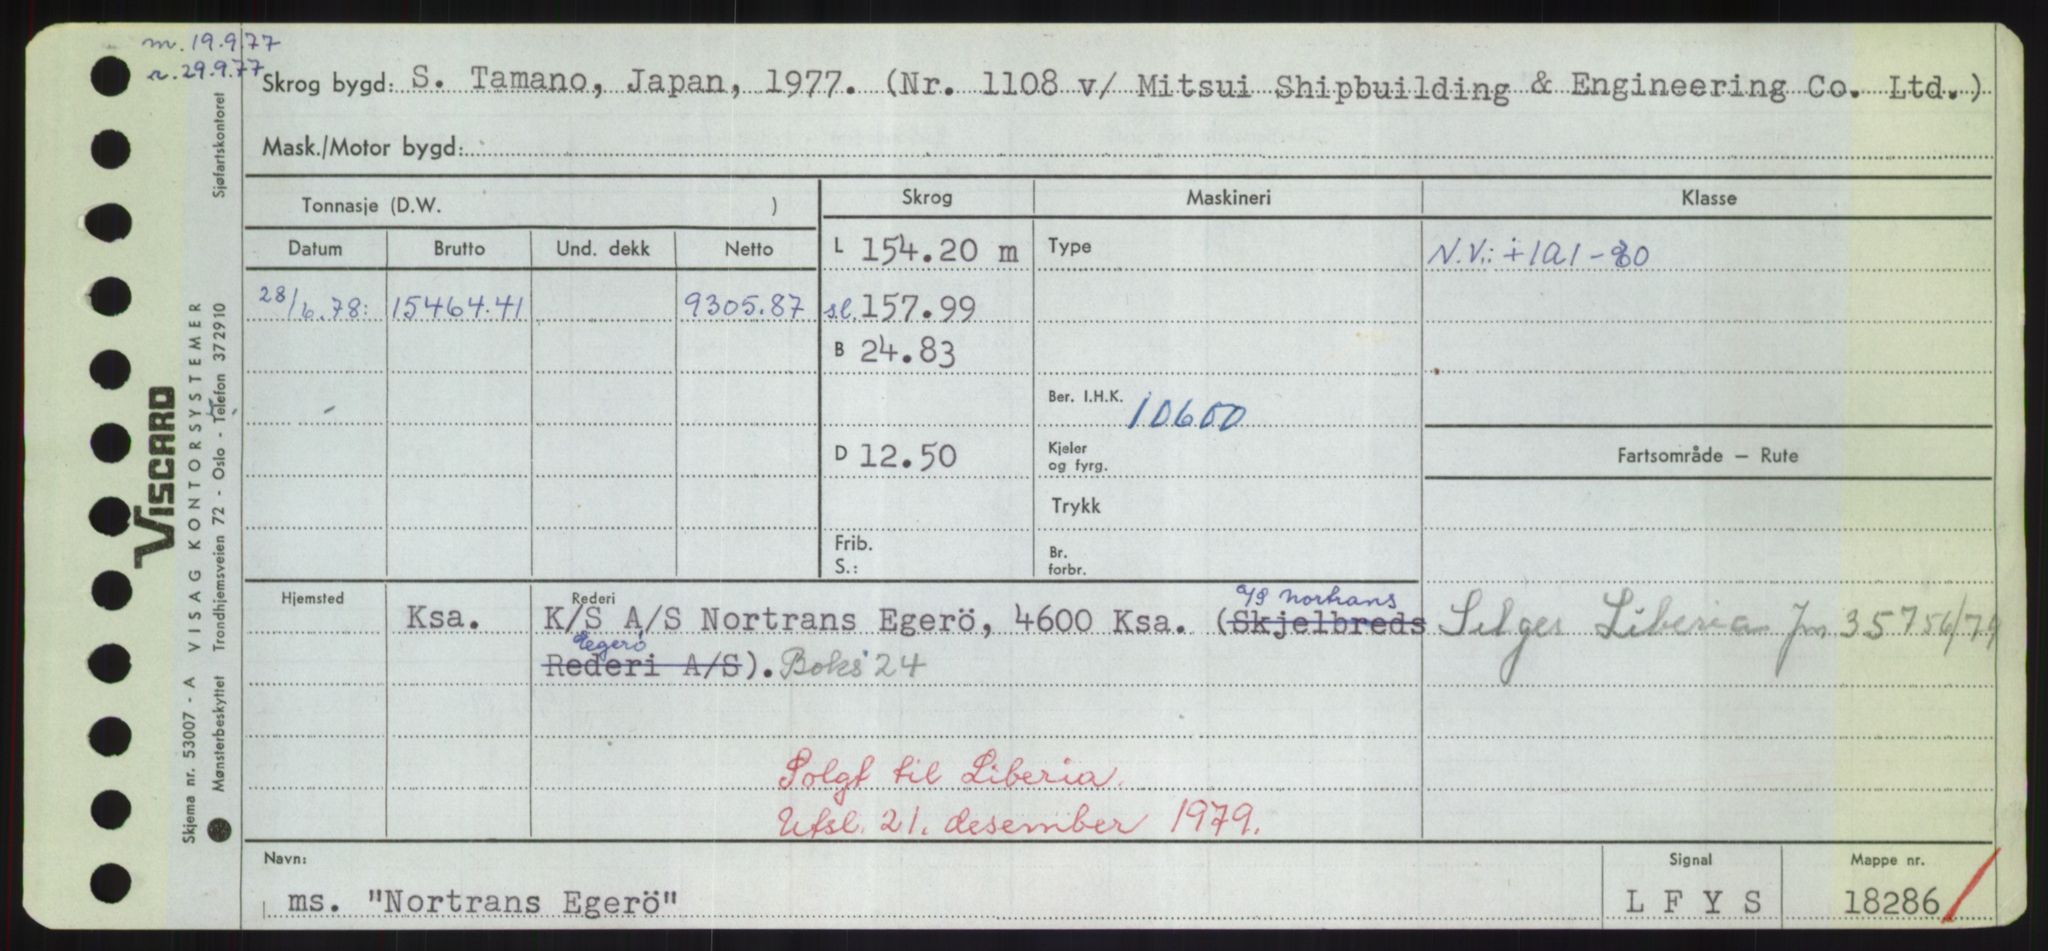 m. 19.9.77
r. 29.9.77
Skrog bygd: S. Tamano, Japan, 1977. (Nr. 1108 v/ Mitsui Shipbuilding & Engineering Co. Ltd.)
Mask./Motor bygd:
Tonnasje (D.W. )
Skrog
Maskineri
Klasse
Datum
Brutto
Und. dekk
Netto
L 154.20 m
Type
N.V.: +1A1-80
28/6.78: 15464.41 9305.87
sl. 157.99
B 24.83
Ber. I.H.K. 10600
D 12.50
Kjeler
og fyrg.
Fartsområde – Rute
Trykk
Frib.
S.:
Br.
forbr.
Hjemsted
Ksa.
Rederi
A/S Nortrans
K/S A/S Nortrans Egerö, 4600 Ksa. (Skjelbreds
Egerö
Rederi A/S). Boks 24
Selges Liberia Jn 35756/79
Solgt til Liberia.
Utsl. 21. desember 1979.
Navn:
ms. "Nortrans Egerö"
Signal
L F Y S
Mappe nr.
18286
VISCARD
Skjema nr. 53007 - A VISAG KONTORSYSTEMER
Mønsterbeskyttet Trondhjemsveien 72 - Oslo - Telefon 372910
Sjøfartskontoret